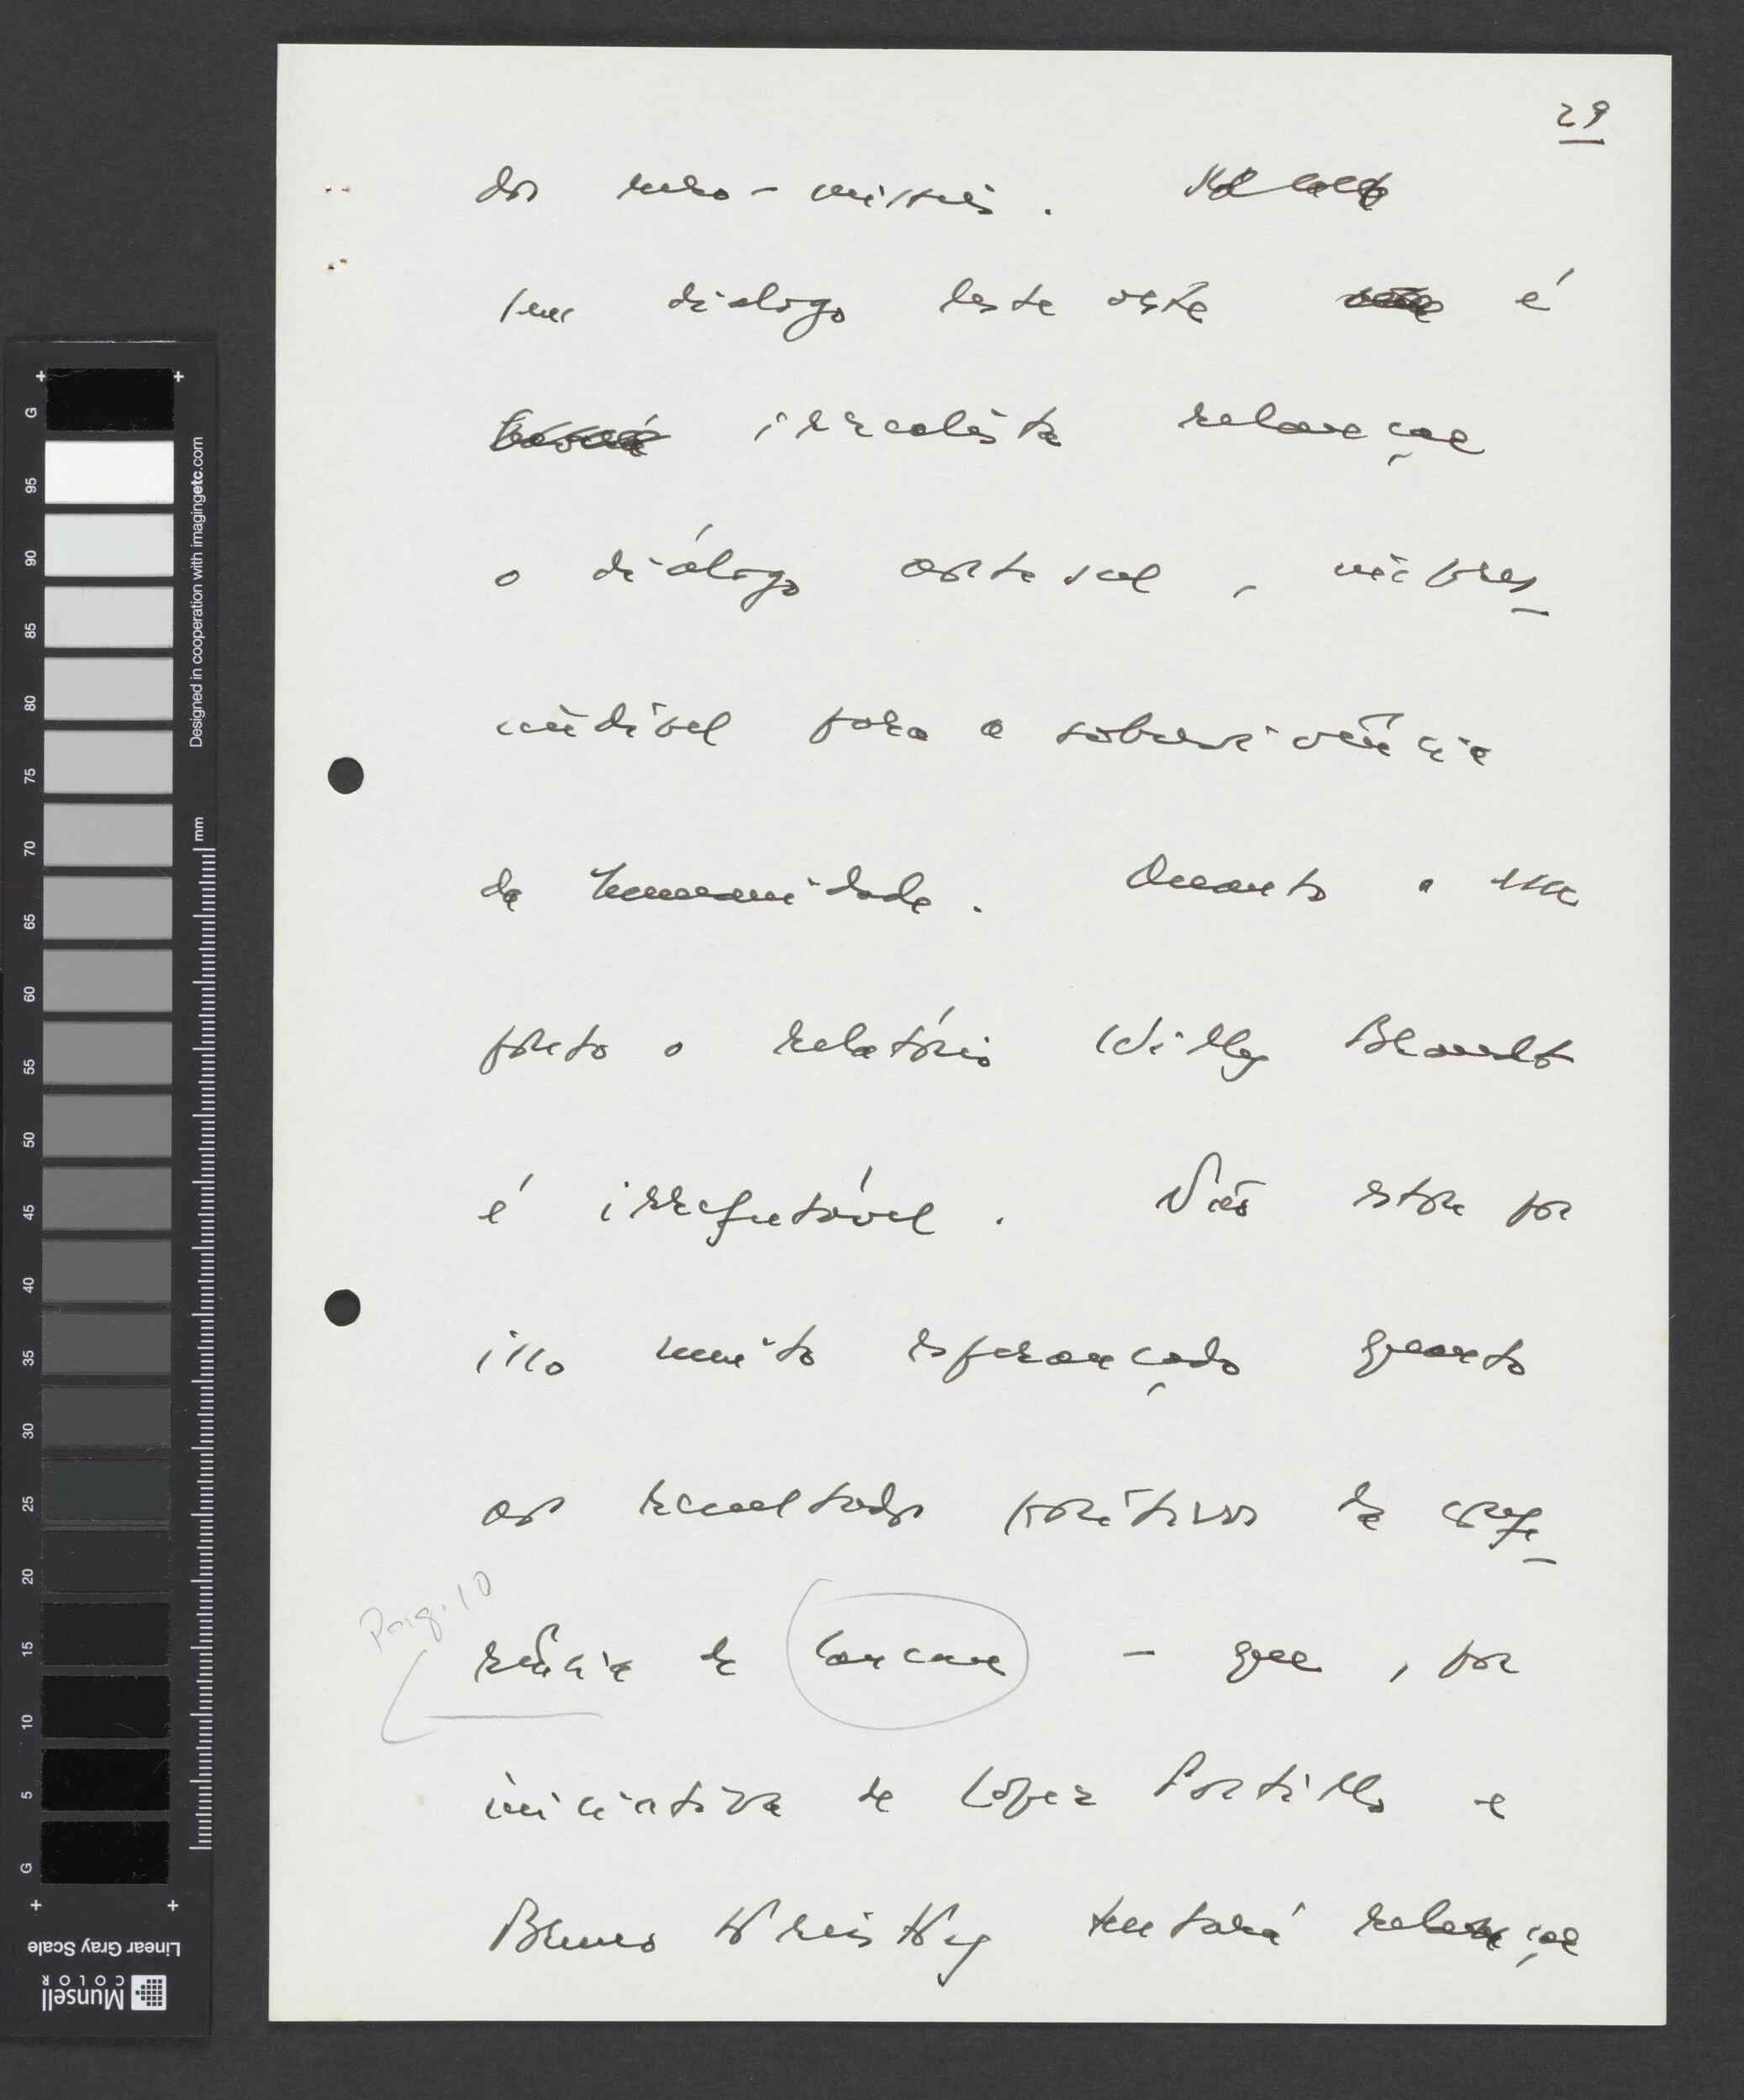 29
dos euro-mísseis.
sem diálogo leste oeste é
irrealista relançar
o diálogo norte sul, impres_
cindível para a sobrevivência
da humanidade. Quanto a esse
ponto o relatório Willy Brandt
é irrefutável. Não estou por
isso muito esperançado quanto
aos resultados positivos da confe_
Pág. 10
rência de Cancun - que, por
iniciativa de Lopez Portillo e
Bruno Kreisky tentará relançar
G
95
90
85
80
75
70
65
60
55
50
45
40
35
30
25
20
15
10
5
G
mm
Designed in cooperation with imagingetc.com
Linear Gray Scale
Munsell
COLOR